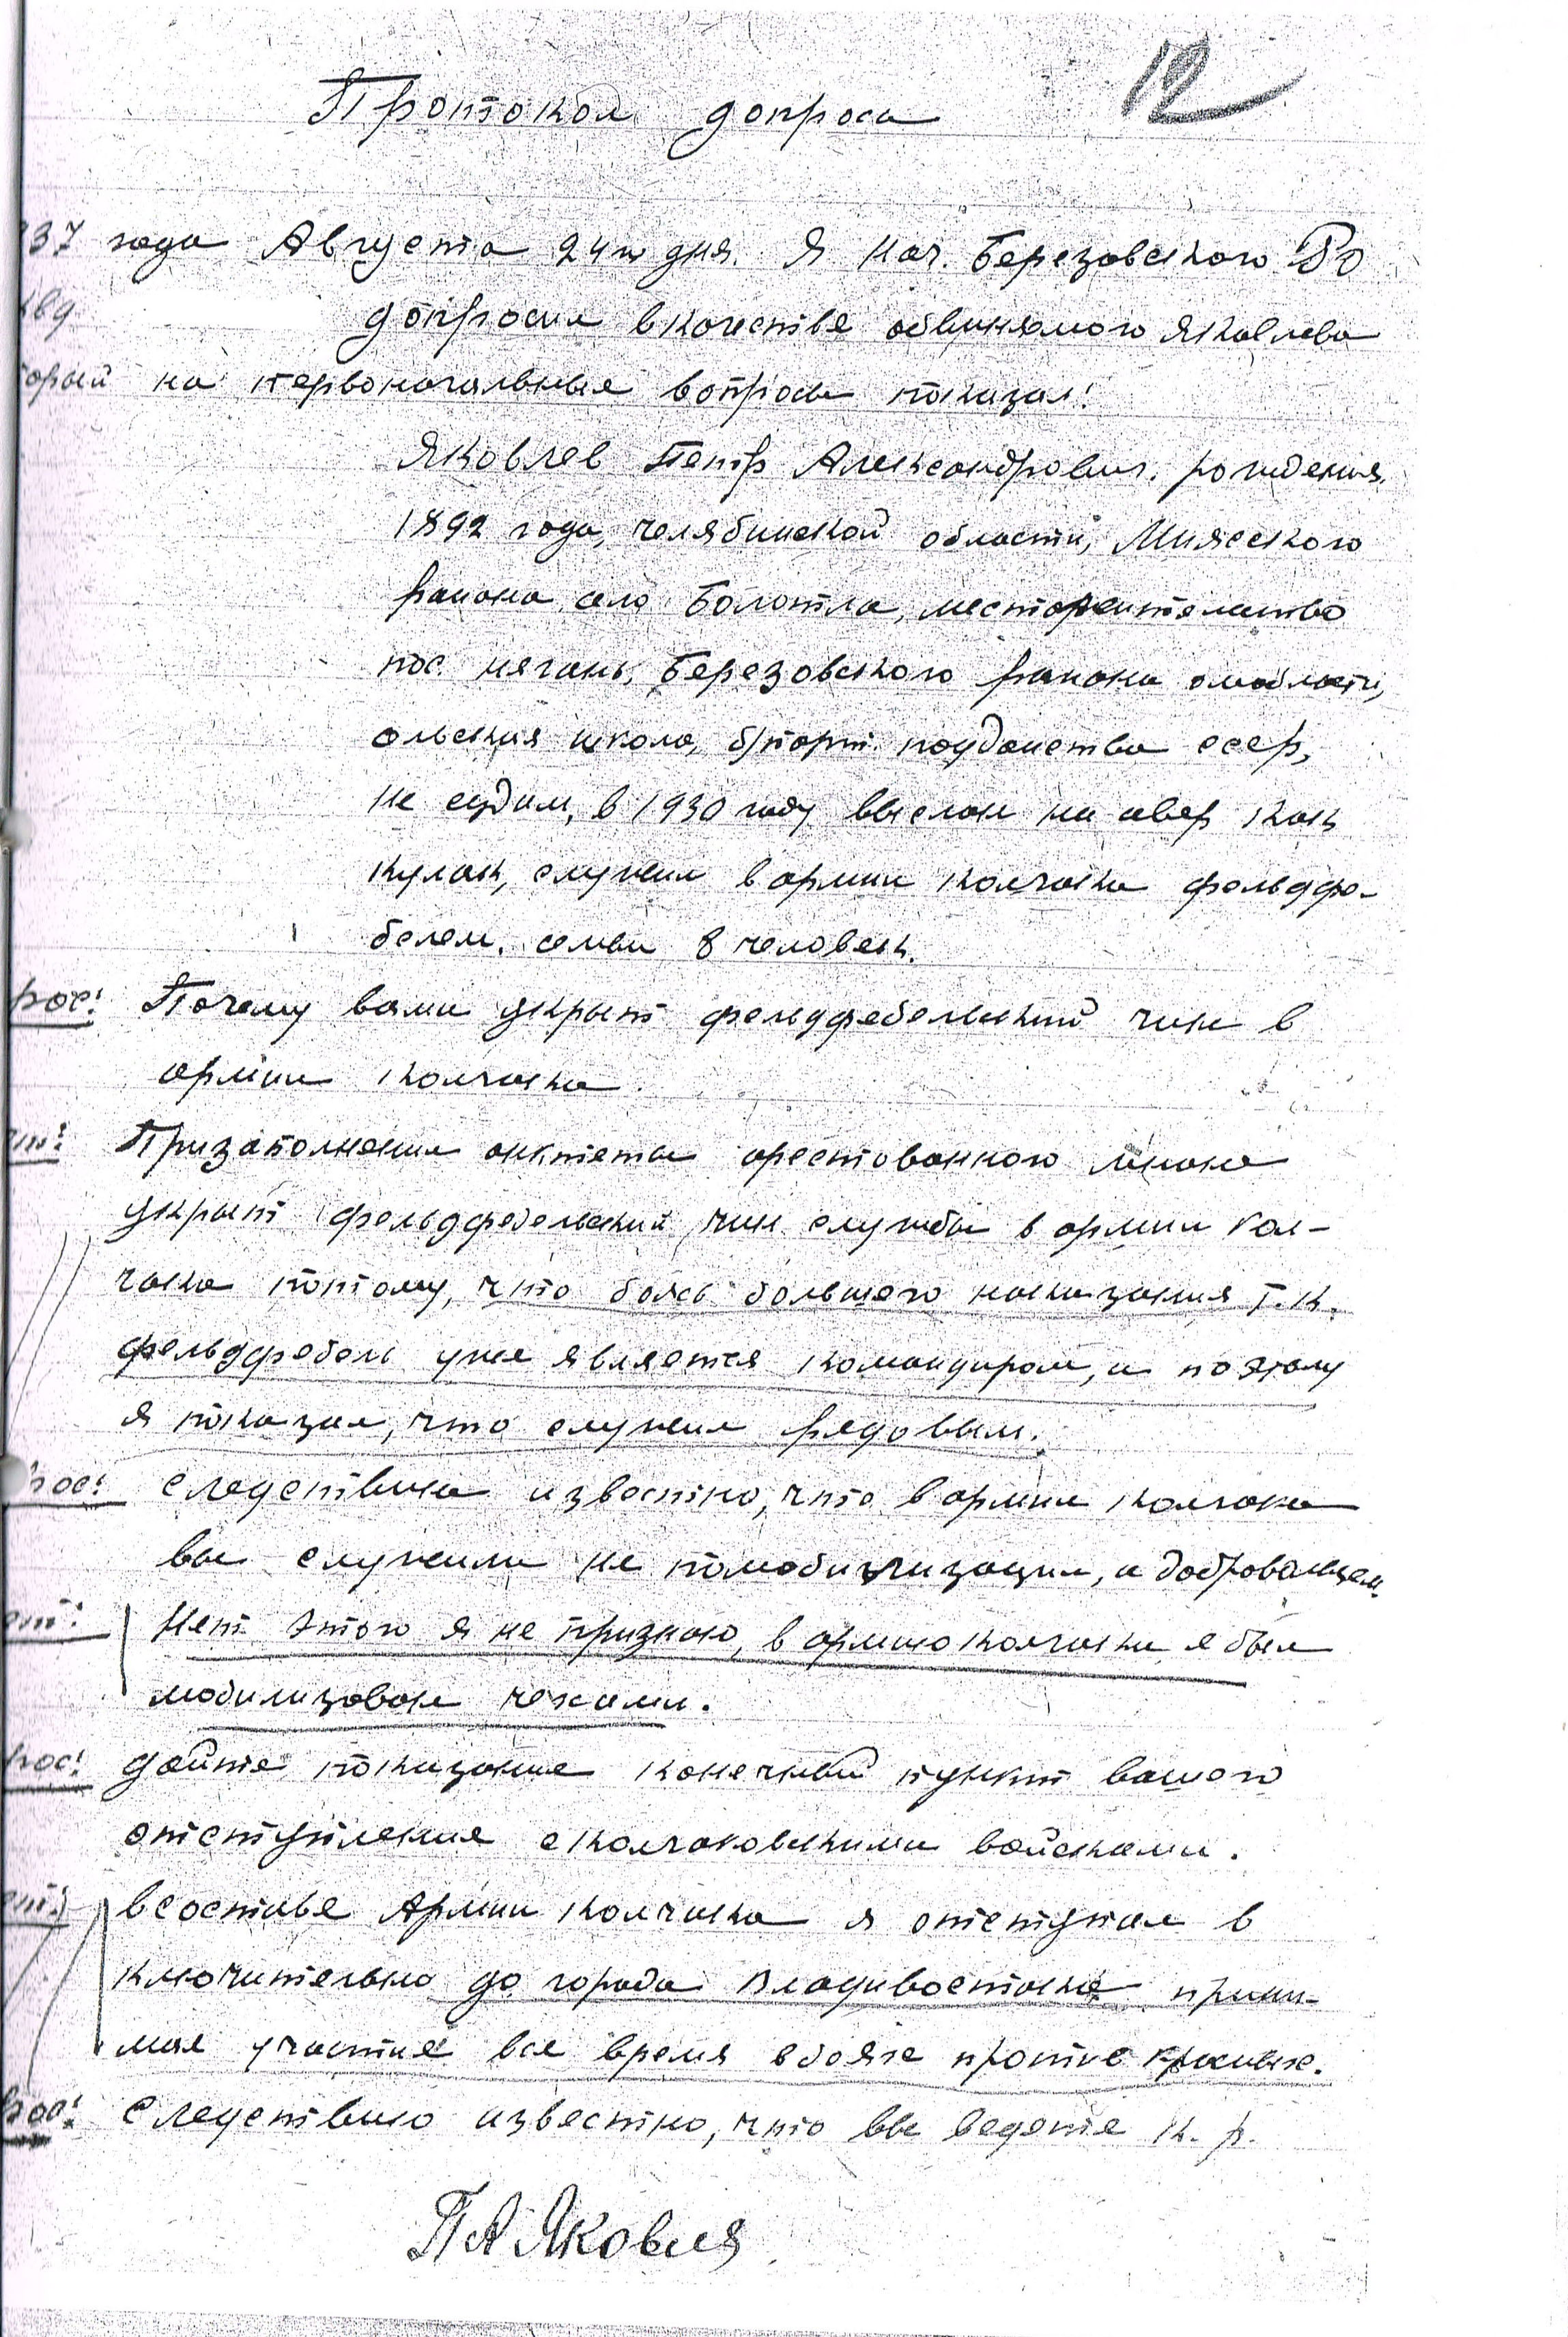 12
Протокол допроса
37 года Августа 24го дня. Я Нач. Березовского РО
допросил вкачестве обвиняемого Яковлева
орый на первоначальные вопросы показал:
Яковлев Петр Александрович. рождения.
1892 года, челябинской области, Миясского
раиона, село Болотла, месторжительство
пос. нягань, Березовского раиона омобласти,
сельская школа, б/парт. поуданства ссср,
не судим, в 1930 году выслан на север как
кулак, служил в армии колчака фельдфе-
белем. семьи 8 человек.
рос: Почему вами укрыт фельдфебельский чин в
армии колчака.
ет: Призаполнении анктеты арестованного мною
укрыт фельдфебельский чин службы в армии кол-
чака потому, что боясь большего наказания т.к.
фельдфебель уже является командиром, и поэтому
я показал, что служил рядовым.
рос: Следствию известно, что в армии колчака
вы служили не помобилизации, а добровольцем.
ет: Нет этого я не признаю, в армию колчака я был
мобилизован чехами.
рос: дайте показание конечный пункт вашего
отступления сколчаковскими войсками.
ет: всоставе Армии колчака я отступал в
ключительно до города Владивостока прини-
мая участие все время вбоях против красных.
рос: Следствию известно, что вы ведете к. р.
ПА Яковля